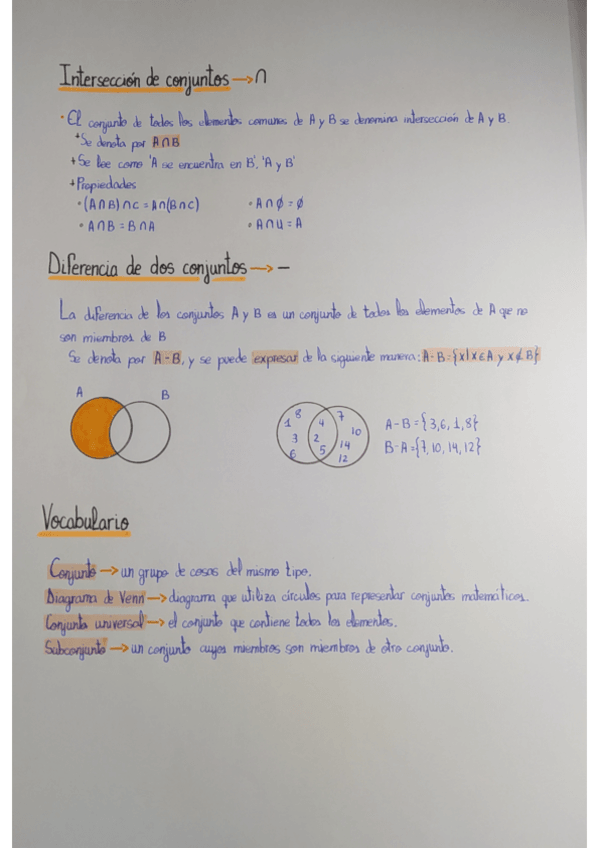 Intersección de conjuntos → ∩
• El conjunto de todos los elementos comunes de A y B se denomina intersección de A y B.
+ Se denota por A∩B
+ Se lee como 'A se encuentra en B', 'A y B'
+ Propiedades
• (A∩B)∩C = A∩(B∩C) • A∩∅ = ∅
• A∩B = B∩A • A∩U = A
Diferencia de dos conjuntos → −
La diferencia de los conjuntos A y B es un conjunto de todos los elementos de A que no
son miembros de B
Se denota por A-B, y se puede expresar de la siguiente manera: A-B={x|x∈A y x∉B}
A B
1 8 3 6 4 2 5 7 10 14 12
A-B={3,6,1,8}
B-A={7,10,14,12}
Vocabulario
Conjunto → un grupo de cosas del mismo tipo.
Diagrama de Venn → diagrama que utiliza círculos para representar conjuntos matemáticos.
Conjunto universal → el conjunto que contiene todos los elementos.
Subconjunto → un conjunto cuyos miembros son miembros de otro conjunto.